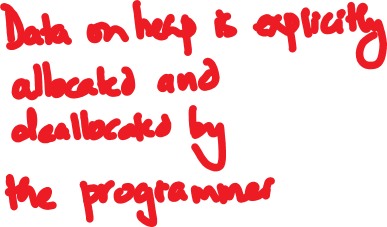 Data on heap is explicitly
allocated and
deallocated by
the programmer